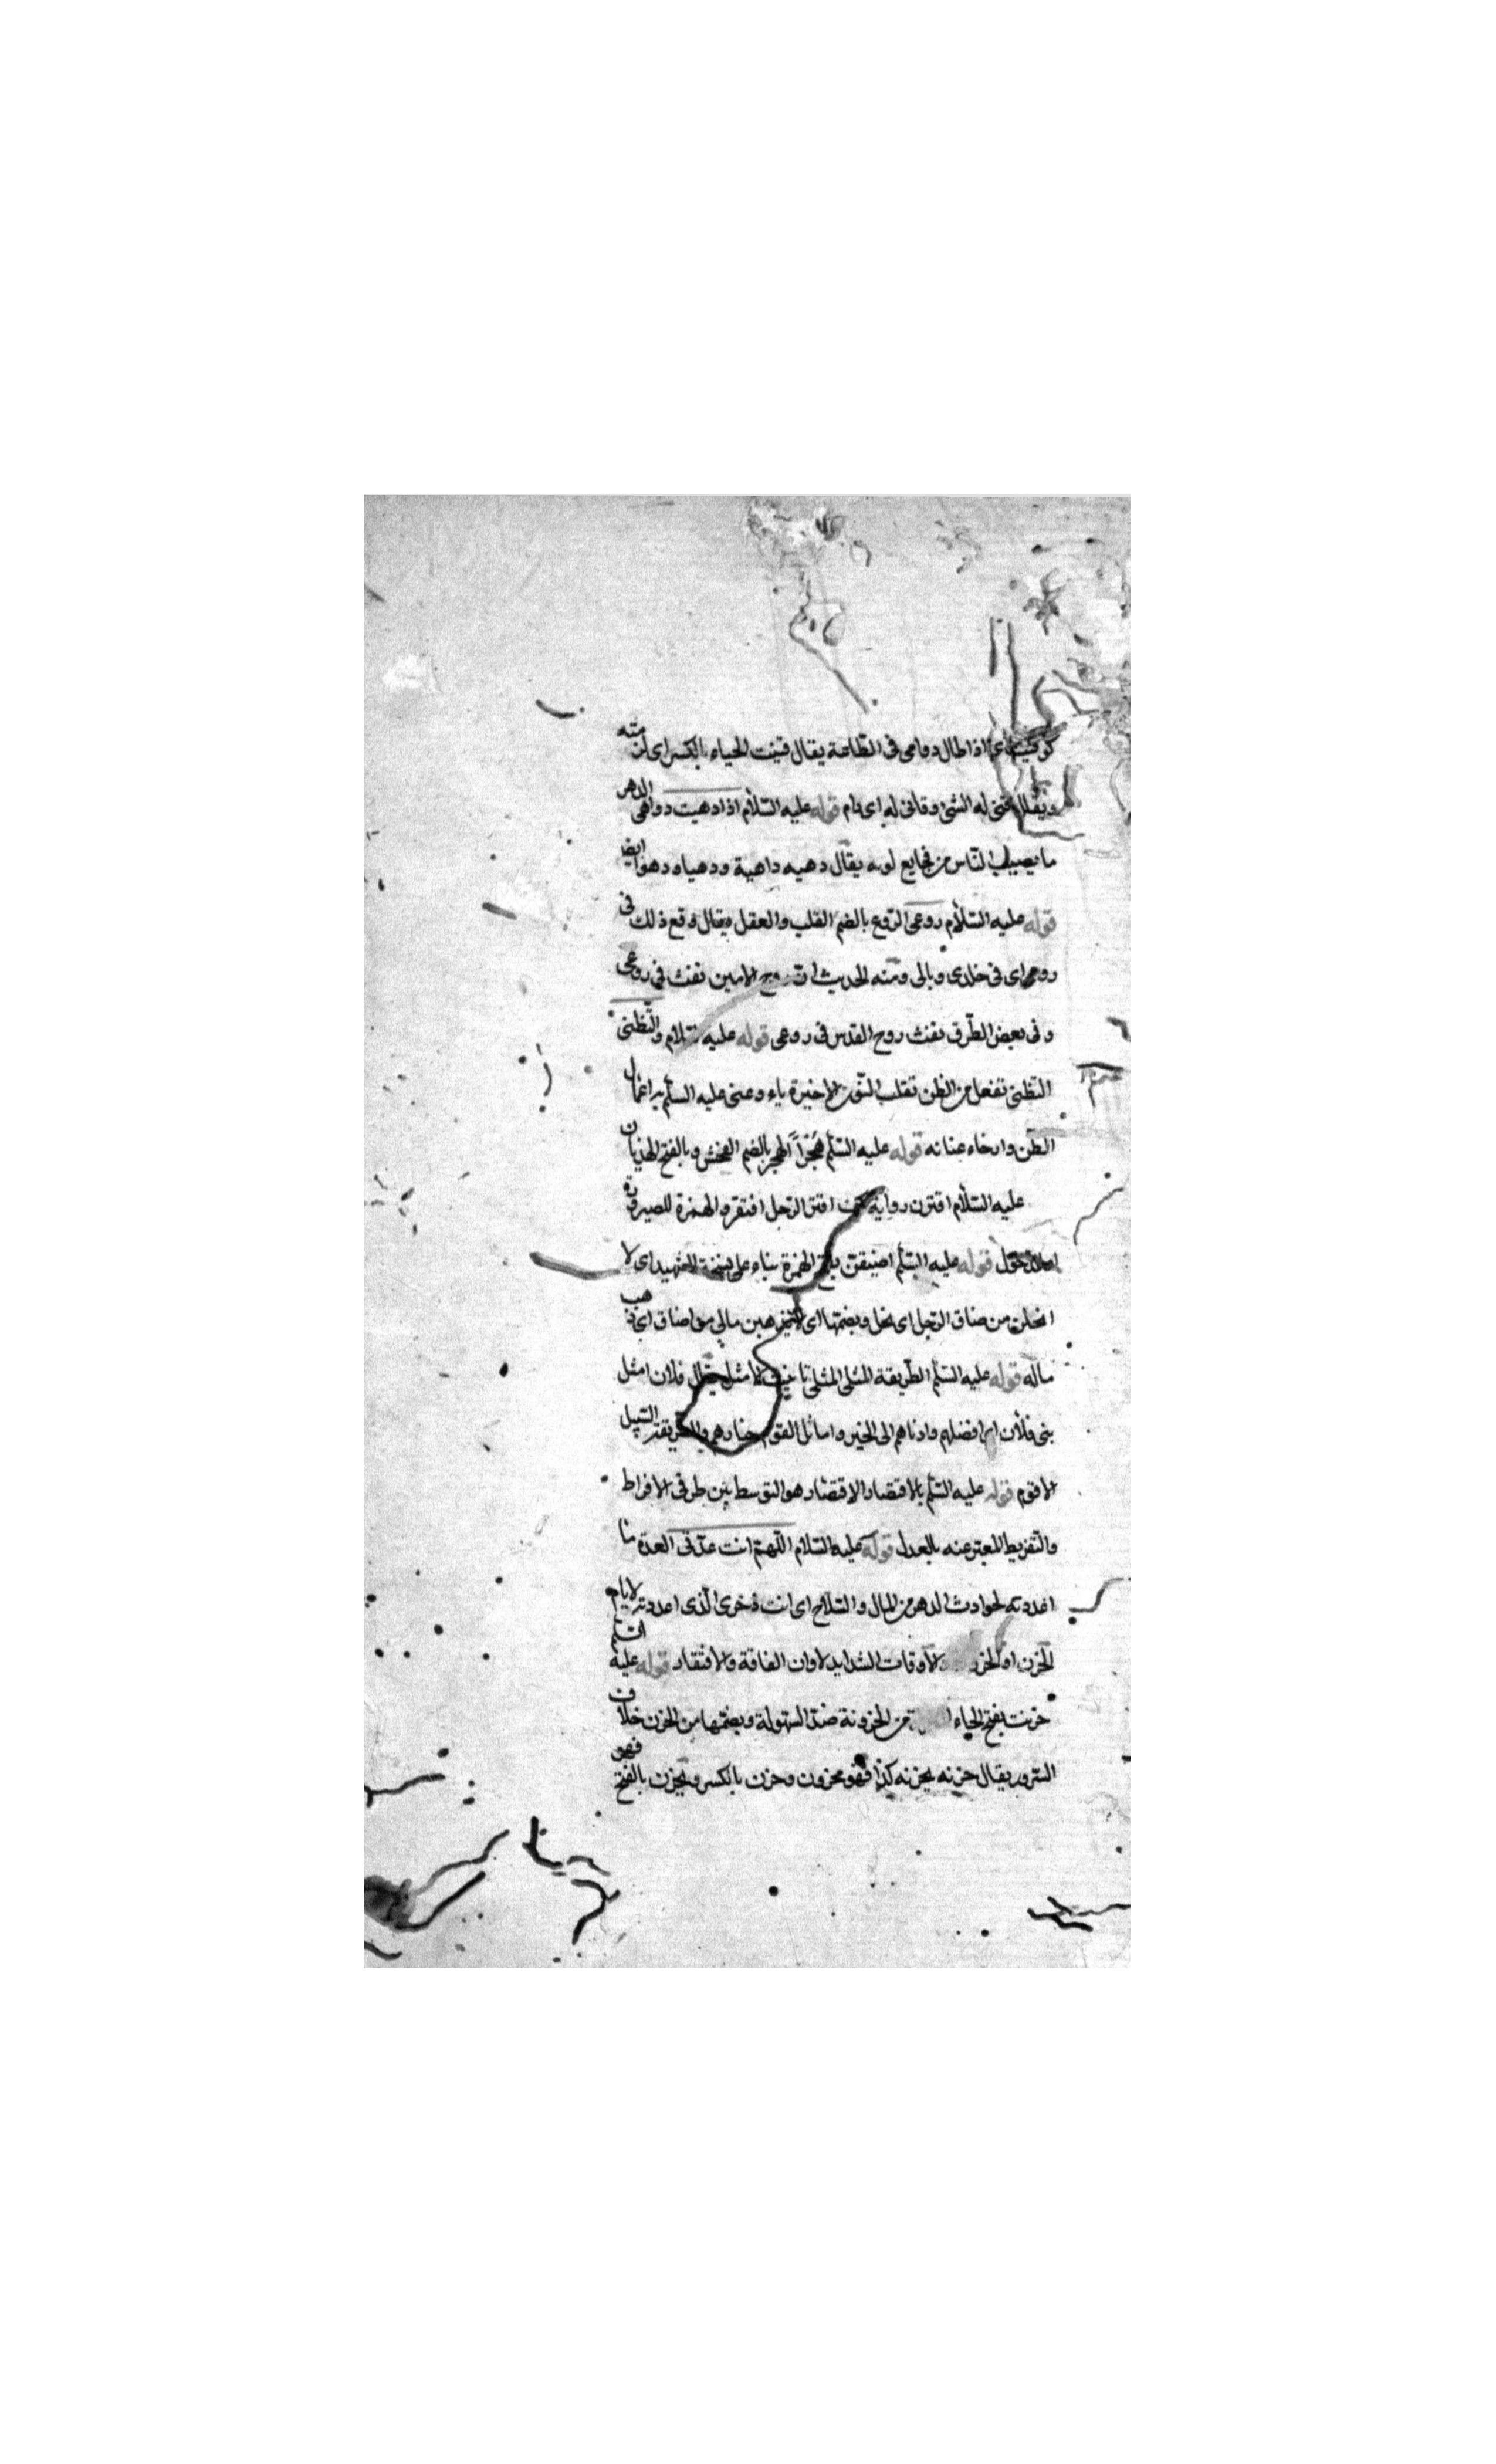 اذا طال دوامى فى الطاعة يقال قنيت الحياء بالكسر اى لزمته
ويقال قنى له الشئ وقانى له اى دام قوله عليه السّلام اذا دهيت دواهى الدهر
ما يصيب الناس من فجايع نوبه يقال دهيه داهية ودهياء دهوا ايضا
قوله عليه السّلام روعى الرّوع بالضم القلب والعقل ويقال وقع ذلك فى
روعى اى فى خلدى وبالى ومنه الحديث ان روح الامين نفث فى روعى
وفى بعض الطّرق نفث روح القدس فى روعى قوله عليه السّلام والتّظنى
التظنى تفعل من الظن تقلب النّون الاخيرة ياء وعنى عليه السلم به اعمال
الظن وارخاء عنانه قوله عليه السّلم هُجراً الهجر بالضم الفحش وبالفتح الهذيان
عليه السّلام اقترن رواية اقتر الرّجل افتقر والهمزة للصيرورة
قوله عليه السّلم اضيقن بفتح الهمزة بناء على نسخة الشهيد اى لا
انحلن من ضاق الرّجل اى بخل وبضمها اى لا مالى من اضاق اى ذهب
ماله قوله عليه السّلم الطّريقة المثلى المثلى تانيث الامثل يقال فلان امثل
بنى فلان اى افضلهم وادناهم الى الخير واماثل القوم خيارهم والطريقة السّبيل
الاقوم قوله عليه السّلم بالاقتصاد الاقتصاد هو التوسط بين طرفى الافراط
والتّفريط المعبّر عنه بالعدل قوله عليه السّلام اللّهمّ انت عدّتى العدة ما
اعددته لحوادث الدهر من المال والسّلاح اى انت ذخرى الّذى اعددته لايام
الحزن او الحزن لاوقات الشدايد لاوان الفاقة والافتقار قوله عليه السّلم
حزنت بفتح الحاء من الحزونة ضد السّهولة وبضمّها من الحزن خلاف
السّرور يقال حزنه يحزنه كذا فهو محزون وحزن بالكسر ويحزن بالفتح فهو